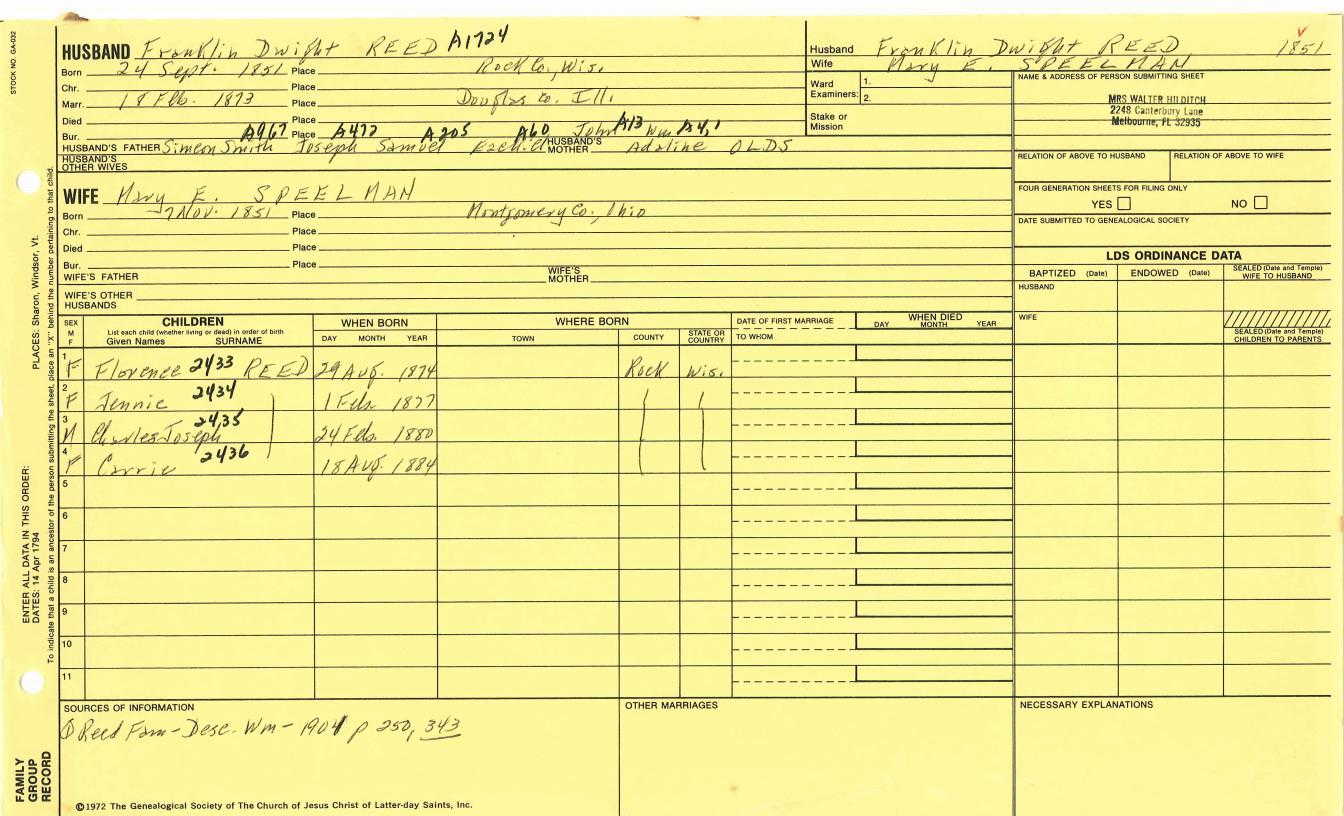 STOCK NO. GA-032
HUSBAND Franklin Dwight REED A1724
Born 24 Sept. 1851 Place Rock Co., Wis.
Chr. Place
Marr. 18 Feb. 1873 Place Douglas Co. Ill.
Died Place
Bur. A967 Place A472 A205 A60 John A13 Wm A4,1
HUSBAND'S FATHER Simeon Smith Joseph Samuel Ezekiel HUSBAND'S MOTHER Adaline OLDS
HUSBAND'S OTHER WIVES
Husband Franklin Dwight REED 1851
Wife Mary E. SPEELMAN
Ward Examiners: 1.
2.
Stake or Mission
NAME & ADDRESS OF PERSON SUBMITTING SHEET
MRS WALTER HILDITCH
2248 Canterbury Lane
Melbourne, FL 32935
RELATION OF ABOVE TO HUSBAND RELATION OF ABOVE TO WIFE
FOUR GENERATION SHEETS FOR FILING ONLY
YES NO
DATE SUBMITTED TO GENEALOGICAL SOCIETY
WIFE Mary E. SPEELMAN
Born 7 Nov. 1851 Place Montgomery Co., Ohio
Chr. Place
Died Place
Bur. Place
WIFE'S FATHER WIFE'S MOTHER
WIFE'S OTHER HUSBANDS
LDS ORDINANCE DATA
BAPTIZED (Date) ENDOWED (Date) SEALED (Date and Temple) WIFE TO HUSBAND
HUSBAND
WIFE
SEALED (Date and Temple) CHILDREN TO PARENTS
SEX M F CHILDREN WHEN BORN WHERE BORN DATE OF FIRST MARRIAGE WHEN DIED
List each child (whether living or dead) in order of birth
Given Names SURNAME DAY MONTH YEAR TOWN COUNTY STATE OR COUNTRY TO WHOM DAY MONTH YEAR
1 F Florence 2433 REED 29 Aug. 1874 Rock Wis.
2 F Jennie 2434 1 Feb. 1877
3 M Charles Joseph 2435 24 Feb. 1880
4 F Carrie 2436 18 Aug. 1884
5
6
7
8
9
10
11
SOURCES OF INFORMATION
① Reed Fam - Desc. Wm - 1901 p 250, 343
OTHER MARRIAGES
NECESSARY EXPLANATIONS
©1972 The Genealogical Society of The Church of Jesus Christ of Latter-day Saints, Inc.
FAMILY GROUP RECORD
ENTER ALL DATA IN THIS ORDER:
DATES: 14 Apr 1794
PLACES: Sharon, Windsor, Vt.
To indicate that a child is an ancestor of the person submitting the sheet, place an "X" behind the number pertaining to that child.